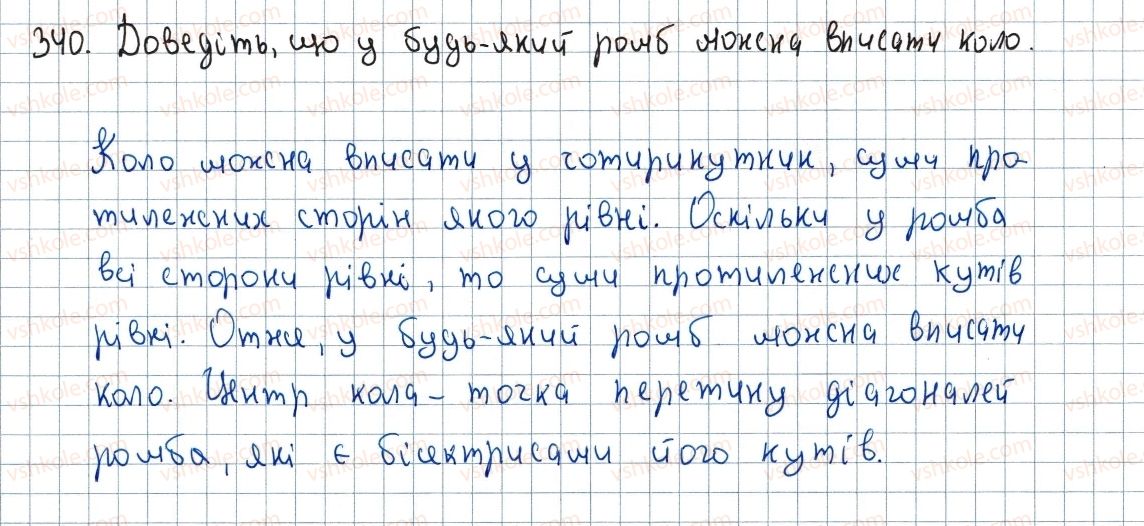 340. Доведіть, що у будь-який ромб можна вписати коло.
Коло можна вписати у чотирикутник, суми про-
тилежних сторін якого рівні. Оскільки у ромба
всі сторони рівні, то суми протилежних кутів
рівні. Отже, у будь-який ромб можна вписати
коло. Центр кола - точка перетину діагоналей
ромба, які є бісектрисами його кутів.